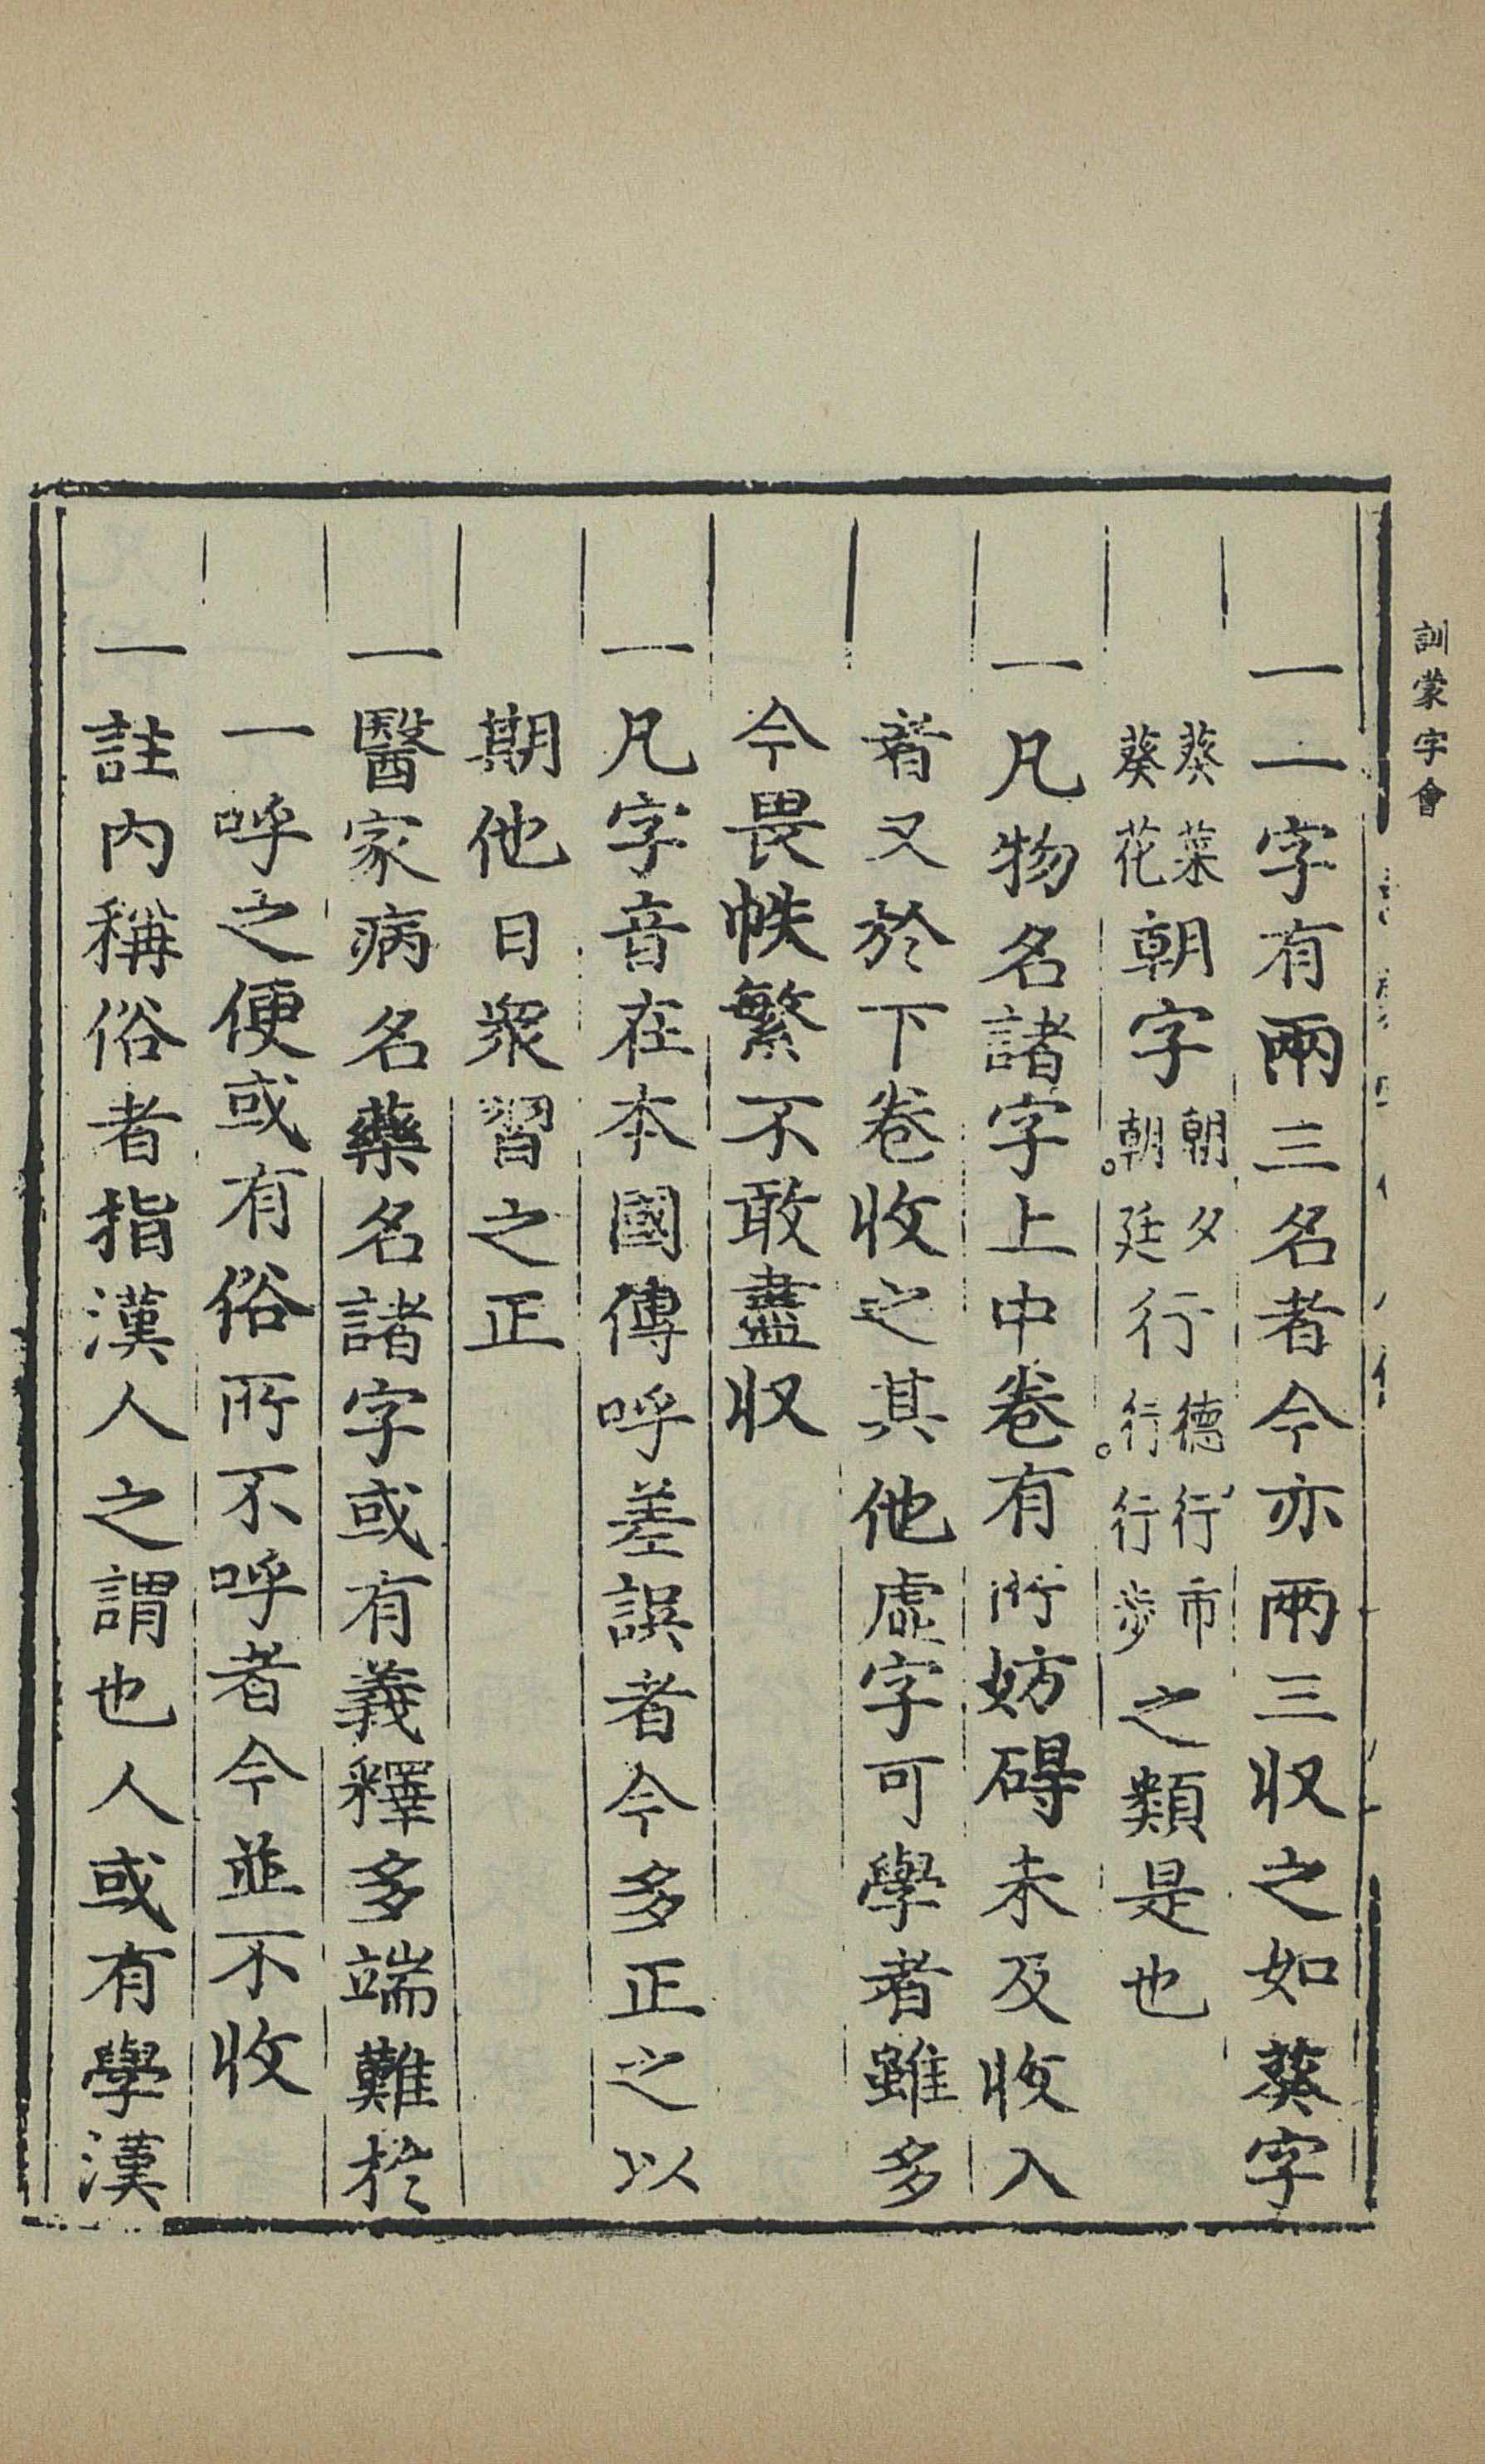 訓蒙字會
一一字有兩三名者今亦兩三收之如葵字
葵菜葵花朝字朝夕朝廷行德行市行行步之類是也
一凡物名諸字上中卷有所妨碍未及收入
者又於下卷收之其他虛字可學者雖多
今畏帙繁不敢盡收
一凡字音在本國傳呼差誤者今多正之以
期他日衆習之正
一醫家病名藥名諸字或有義釋多端難於
一呼之便或有俗所不呼者今並不收
一註內稱俗者指漢人之謂也人或有學漢